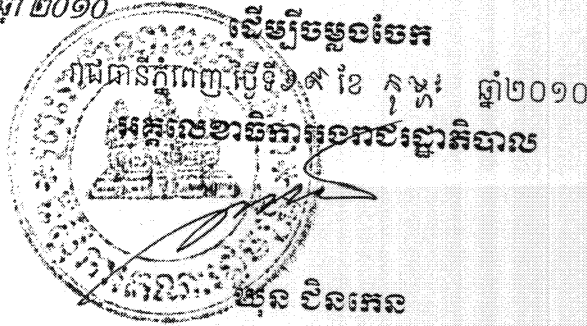 ឆ្នាំ ២០១០
ដើម្បីចម្លងចែក
រាជធានីភ្នំពេញ ថ្ងៃទី ១៩ ខែ កុម្ភៈ ឆ្នាំ២០១០
អគ្គលេខាធិការរងរាជរដ្ឋាភិបាល
ឃុន ជិនកេន